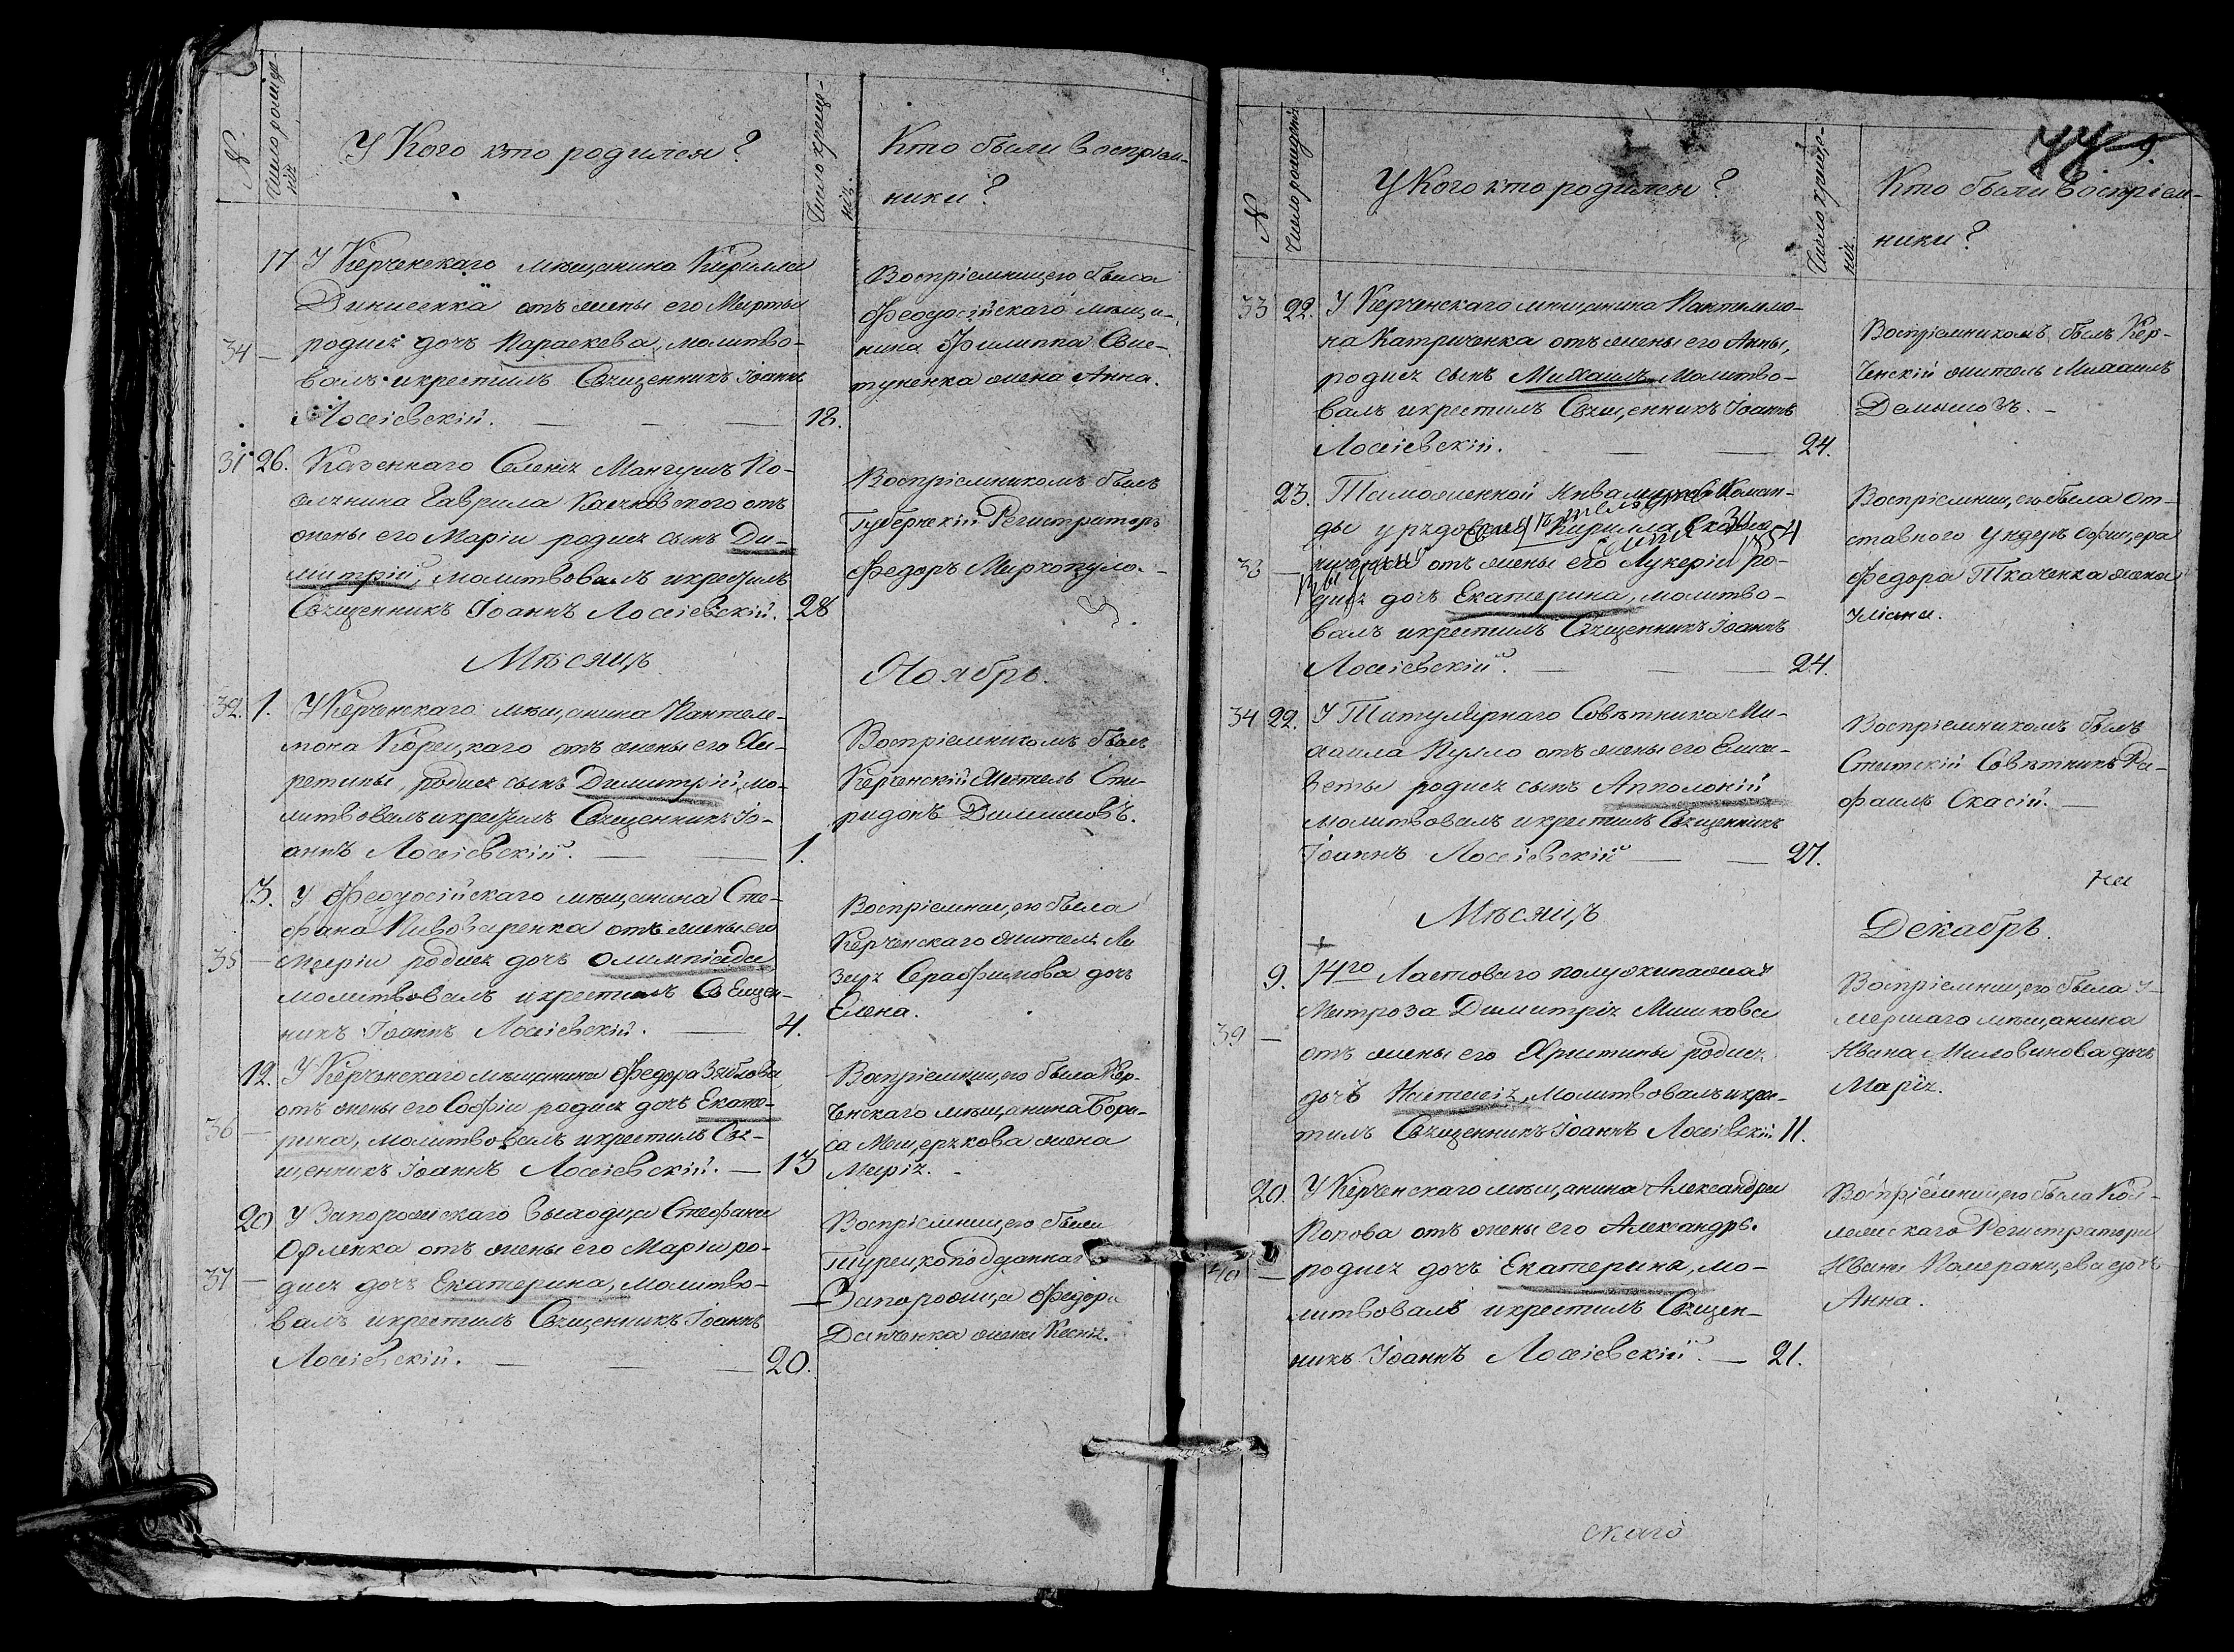 №
Число рожде-
нія
У Кого кто родился?
Число креще-
нія.
Кто были воспріем-
ники?
17 У Керченскаго мѣщанина Кирилла
отъ жены его Марѳы
34 — родися дочь Параскева, молитво-
валъ и крестилъ Священникъ Іоаннъ
Лосіевскій. — — — 18.
Воспріемницею была
Феодосійскаго мѣща-
нина Филиппа
жена Анна.
31 26. Казеннаго Селенія Мангушъ По-
селянина Гаврила Качковского отъ
жены его Маріи родися сынъ Ди-
митрій, молитвовалъ и крестилъ
Священникъ Іоаннъ Лосіевскій. 28
Воспріемникомъ былъ
Губернскій Регистраторъ
Федоръ Маркопуло. —
Мѣсяцъ
Ноябрь.
32. 1. У Керченскаго мѣщанина Пантеле-
мона Корецкаго отъ жены его Ха-
ретины, родися сынъ Димитрій, мо-
литвовалъ и крестилъ Священникъ Іо-
аннъ Лосіевскій. — — 1.
Воспріемникомъ былъ
Керченскій Житель Спи-
ридонъ
3. У Феодосійскаго мѣщанина Сте-
фана Пивоваренка отъ жены его
35 — Маріи родися дочь Олимпіада
молитвовалъ и крестилъ Священ-
никъ Іоаннъ Лосіевскій. — 4.
Воспріемницею была
Керченскаго жителя Ла
заря Серафимова дочь
Елена.
12. У Керченскаго мѣщанина Федора Зяблова
отъ жены его Софіи родися дочь Екате-
36 — рина, молитвовалъ и крестилъ Свя-
щенникъ Іоаннъ Лосіевскій. — 13
Воспріемницею была Кер-
ченскаго мѣщанина Бори-
са Мещерякова жена
Марія. —
20 У Запорожскаго выходца Стефана
отъ жены его Маріи ро-
37 — дися дочь Екатерина, молитво-
валъ и крестилъ Священникъ Іоаннъ
Лосіевскій. — — — 20.
Воспріемницею была
Турецкоподданнаго
Запорожца Федора
Данченка жена
77
9.
№
Число рожденія
У Кого кто родился?
Число креще-
нія
Кто были воспріем-
ники?
33 22. У Керченскаго мѣщанина Пантелимо-
на Катриченка отъ жены его Анны,
родися сынъ Михаилъ. Молитво-
валъ и крестилъ Священникъ Іоаннъ
Лосіевскій. — — 24.
Воспріемникомъ былъ Кер-
ченскій житель Михаилъ
23. Таможенной Инвалидной Коман-
ды рядовой Кирилла
38 — отъ жены его Лукеріи ро-
дися дочь Екатерина, молитво-
валъ и крестилъ Священникъ Іоаннъ
Лосіевскій. — — 24.
Воспріемницею была от-
ставного ундеръ офицера
Федора Ткаченка жена
Уліана.
34 22. У Титулярнаго Совѣтника Ми-
хаила Пулло отъ жены его Елиса-
веты родися сынъ Апполоній
молитвовалъ и крестилъ Священникъ
Іоаннъ Лосіевскій — — 27.
Воспріемникомъ былъ
Статскій Совѣтникъ Ра-
фаилъ Скасій. —
Мѣсяцъ
Декабрь.
9. 14го Ластоваго полуэкипажа
Матроза Димитрія Мишкова
39 — отъ жены его Христины родися
дочь Наталія, Молитвовалъ и крес-
тилъ Священникъ Іоаннъ Лосіевскій 11.
Воспріемницею была у-
мершаго мѣщанина
Ивана Миловинова дочь
Марія.
20. У Керченскаго мѣщанина Александра
Попова отъ жены его Александры.
40 — родися дочь Екатерина, мо-
литвовалъ и крестилъ Священ-
никъ Іоаннъ Лосіевскій. — 21.
Воспріемницею была Кол-
лежскаго Регистратора
Ивана Померанцева дочь
Анна.
скаго